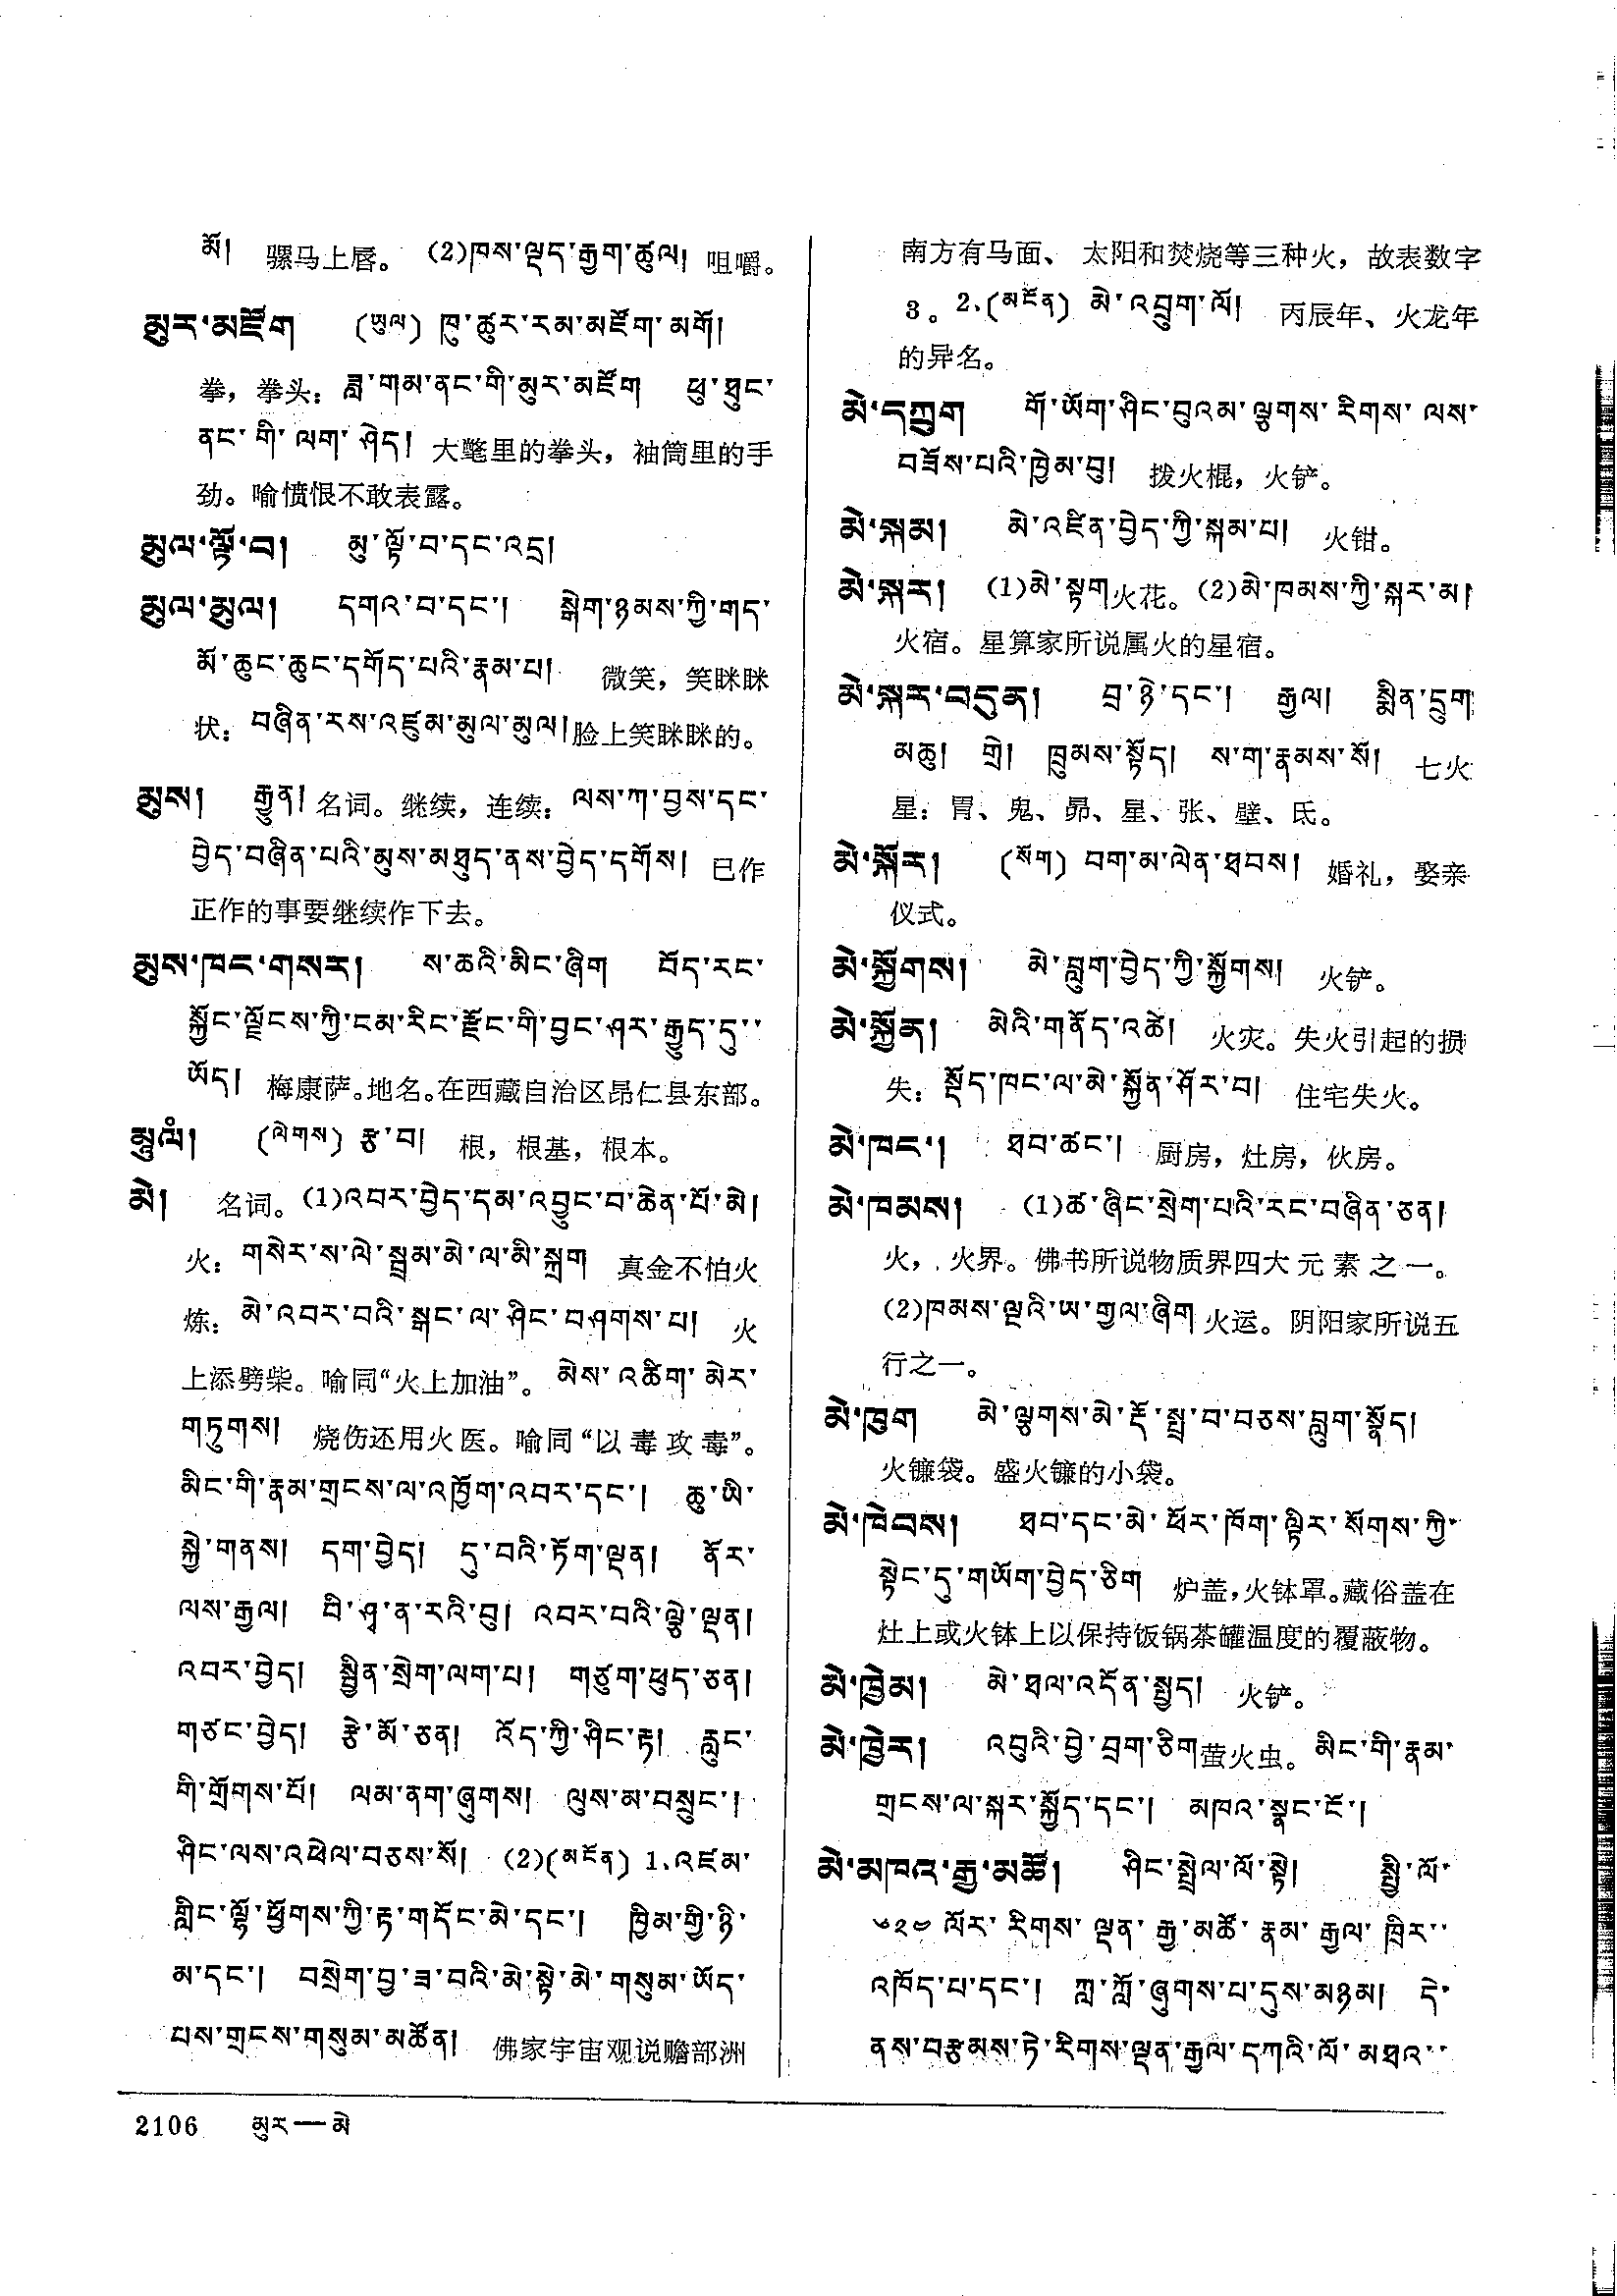 མོ། 骡马上唇。 (2)ཁས་ལྡད་རྒྱག་ཚུལ། 咀嚼。
མུར་མཛོག (ཡུལ) ཁུ་ཚུར་རམ་མཛོག་མགོ།
拳，拳头：ཟླ་གམ་ནང་གི་མུར་མཛོག ཕུ་ཐུང་
ནང་གི་ལག་ཤེད། 大氅里的拳头，袖筒里的手
劲。喻愤恨不敢表露。
མུལ་ལྟོ་བ། མུ་ལྟོ་བ་དང་འདྲ།
མུལ་མུལ། དགའ་བ་དང་། སྒེག་ཉམས་ཀྱི་གད་
མོ་ཆུང་ཆུང་དགོད་པའི་རྣམ་པ། 微笑，笑眯眯
状：བཞིན་རས་འཛུམ་མུལ་མུལ། 脸上笑眯眯的。
མུས། རྒྱུན། 名词。继续，连续：ལས་ཀ་བྱས་དང་
བྱེད་བཞིན་པའི་མུས་མཐུད་ནས་བྱེད་དགོས། 已作
正作的事要继续作下去。
མུས་ཁང་གསར། ས་ཆའི་མིང་ཞིག བོད་རང་
སྐྱོང་ལྗོངས་ཀྱི་ངམ་རིང་རྫོང་གི་བྱང་ཤར་རྒྱུད་དུ་
ཡོད། 梅康萨。地名。在西藏自治区昂仁县东部。
མཱུལཾ། (ལེགས) རྩ་བ། 根，根基，根本。
མེ། 名词。(1)འབར་བྱེད་དམ་འབྱུང་བ་ཆེན་པོ་མེ།
火：གསེར་ས་ལེ་སྦྲམ་མེ་ལ་མི་སྐྲག 真金不怕火
炼：མེ་འབར་བའི་སྒང་ལ་ཤིང་བཤགས་པ། 火
上添劈柴。喻同“火上加油”。མེས་འཚིག་མེར་
གཏུགས། 烧伤还用火医。喻同“以毒攻毒”。
མིང་གི་རྣམ་གྲངས་ལ་འཁྱོག་འབར་དང་། ཆུ་ཡི་
སྐྱེ་གནས། དག་བྱེད། དུ་བའི་ཏོག་ལྡན། ནོར་
ལས་རྒྱལ། བི་ཤྭ་ན་རའི་བུ། འབར་བའི་ལྕེ་ལྡན།
འབར་བྱེད། སྦྱིན་སྲེག་ལག་པ། གཙུག་ཕུད་ཅན།
གཙང་བྱེད། རྩེ་མོ་ཅན། འོད་ཀྱི་ཤིང་རྟ། རླུང་
གི་གྲོགས་པོ། ལམ་ནག་ཞུགས། ལུས་མ་བསྲུང་།
ཤིང་ལས་འཕེལ་བཅས་སོ། (2)(མངོན) 1.འཛམ་
གླིང་ལྷོ་ཕྱོགས་ཀྱི་རྟ་གདོང་མེ་དང་། ཁྱིམ་གྱི་ཉི་
མ་དང་། བསྲེག་བྱ་ཟ་བའི་མེ་སྟེ་མེ་གསུམ་ཡོད་
པས་གྲངས་གསུམ་མཚོན། 佛家宇宙观说赡部洲
南方有马面、太阳和焚烧等三种火，故表数字
3。2.(མངོན) མེ་འབྲུག་ལོ། 丙辰年、火龙年
的异名。
མེ་དཀྲུག གོ་ཡོག་ཤིང་བུའམ་ལྕགས་རིགས་ལས་
བཟོས་པའི་ཁྱེམ་བུ། 拨火棍，火铲。
མེ་སྐམ། མེ་འཛིན་བྱེད་ཀྱི་སྐམ་པ། 火钳。
མེ་སྐར། (1)མེ་སྟག 火花。(2)མེ་ཁམས་ཀྱི་སྐར་མ།
火宿。星算家所说属火的星宿。
མེ་སྐར་བདུན། བྲ་ཉེ་དང་། རྒྱལ། སྨིན་དྲུག
མཆུ། གྲེ། ཁྲུམས་སྟོད། ས་ག་རྣམས་སོ། 七火
星：胃、鬼、昴、星、张、壁、氐。
མེ་སྐོར། (སོག) བག་མ་ལེན་ཐབས། 婚礼，娶亲
仪式。
མེ་སྐྱོགས། མེ་བླུག་བྱེད་ཀྱི་སྐྱོགས། 火铲。
མེ་སྐྱོན། མེའི་གནོད་འཚེ། 火灾。失火引起的损
失：སྡོད་ཁང་ལ་མེ་སྐྱོན་ཤོར་བ། 住宅失火。
མེ་ཁང་། ཐབ་ཚང་། 厨房，灶房，伙房。
མེ་ཁམས། (1)ཚ་ཞིང་སྲེག་པའི་རང་བཞིན་ཅན།
火，火界。佛书所说物质界四大元素之一。
(2)ཁམས་ལྔའི་ཡ་གྱལ་ཞིག 火运。阴阳家所说五
行之一。
མེ་ཁུག མེ་ལྕགས་མེ་རྡོ་སྤྲ་བ་བཅས་བླུག་སྣོད།
火镰袋。盛火镰的小袋。
མེ་ཁེབས། ཐབ་དང་མེ་ཕོར་ཁོག་ལྟིར་སོགས་ཀྱི་
སྟེང་དུ་གཡོག་བྱེད་ཅིག 炉盖，火钵罩。藏俗盖在
灶上或火钵上以保持饭锅茶罐温度的覆蔽物。
མེ་ཁྱེམ། མེ་ཐལ་འདོན་སྤྱད། 火铲。
མེ་ཁྱེར། འབུའི་བྱེ་བྲག་ཅིག 萤火虫。མིང་གི་རྣམ་
གྲངས་ལ་སྐར་སྐྱོད་དང་། མཁའ་སྣང་ངོ་།
མེ་མཁའ་རྒྱ་མཚོ། ཤིང་སྤྲེལ་ལོ་སྟེ། སྤྱི་ལོ་
༦༢༤ ལོར་རིགས་ལྡན་རྒྱ་མཚོ་རྣམ་རྒྱལ་ཁྲིར་
འཁོད་པ་དང་། ཀླ་ཀློ་ཞུགས་པ་དུས་མཉམ། དེ་
ནས་བརྩམས་ཏེ་རིགས་ལྡན་རྒྱལ་དཀའི་ལོ་མཐའ་
2106 མུར—མེ